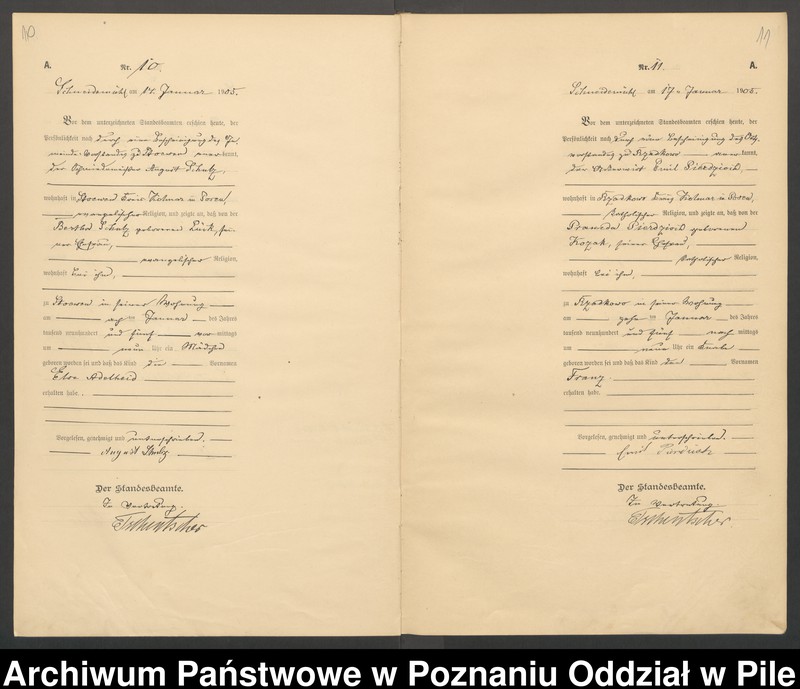 10.
A.
Nr. 10.
Schneidemühl am 14. Januar 1905.
Vor dem unterzeichneten Standesbeamten erschien heute, der
Persönlichkeit nach durch eine Bescheinigung des Ge-
meinde-Vorstandes zu kannt,
der August Schulz,
wohnhaft in Kreis Kolmar in Posen,
evangelischer Religion, und zeigte an, daß von der
Bertha Schulz geborenen Lück, sei-
ner Ehefrau,
evangelischer Religion,
wohnhaft bei ihm,
zu in seiner Wohnung
am ten Januar des Jahres
tausend neunhundert und fünf vor mittags
um neun Uhr ein Mädchen
geboren worden sei und daß das Kind die Vornamen
Adelheid
erhalten habe.
Vorgelesen, genehmigt und unterschrieben.
August Schulz
Der Standesbeamte.
In Vertretung.
Tschentscher
11
Nr. 11.
A.
Schneidemühl am 17. Januar 1905.
Vor dem unterzeichneten Standesbeamten erschien heute, der
Persönlichkeit nach durch eine Bescheinigung des Orts-
vorstandes zu kannt,
der Emil
wohnhaft in Kreis Kolmar in Posen,
katholischer Religion, und zeigte an, daß von der
geborenen
Kozak, seiner Ehefrau,
katholischer Religion,
wohnhaft bei ihm,
zu in seiner Wohnung
am zehn ten Januar des Jahres
tausend neunhundert und fünf nach mittags
um neun Uhr ein Knabe
geboren worden sei und daß das Kind den Vornamen
Franz
erhalten habe.
Vorgelesen, genehmigt und unterschrieben.
Emil
Der Standesbeamte.
In Vertretung.
Tschentscher.
Archiwum Państwowe w Poznaniu Oddział w Pile